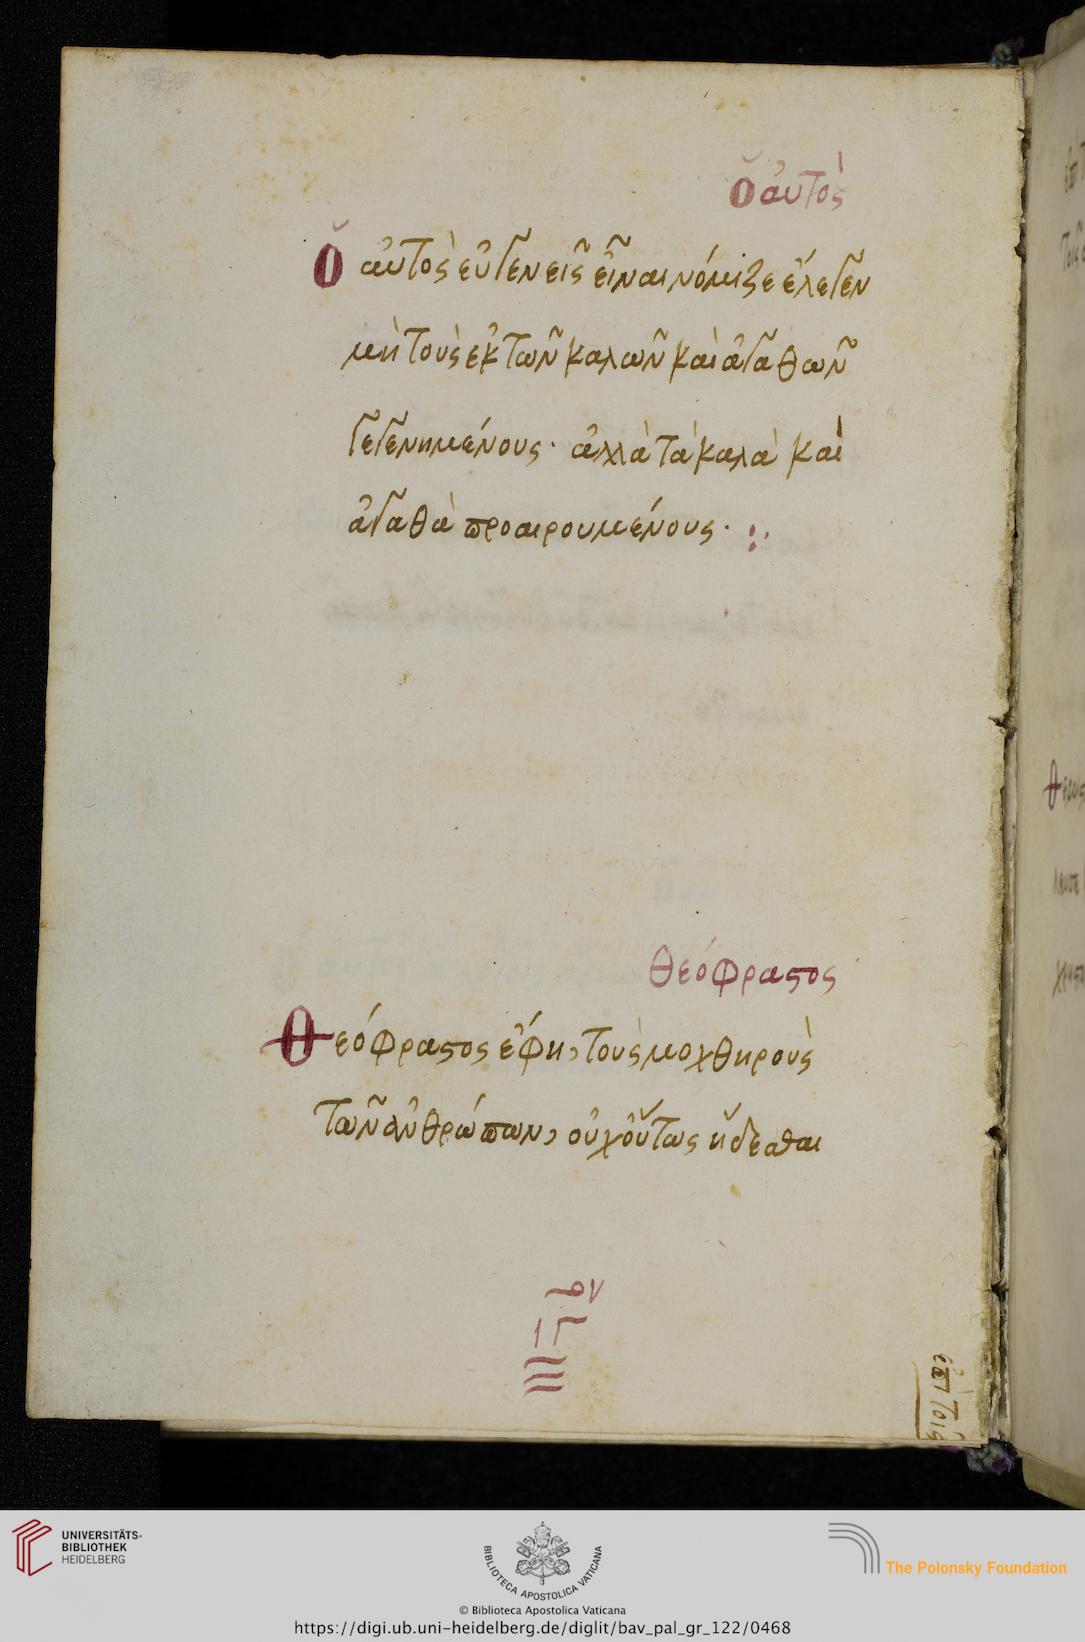 Ὁ αὐτὸς
Ὁ αὐτὸς εὐγενεῖς εἶναι νόμιζε ἔλεγεν
μὴ τοὺς ἐκ τῶν καλῶν καὶ ἀγαθῶν
γεγενημένους· ἀλλὰ τὰ καλὰ καὶ
ἀγαθὰ προαιρουμένους· :·
Θεόφραστος
Θεόφραστος ἔφη, τοὺς μοχθηροὺς
τῶν ἀνθρώπων, οὐχ οὕτως ἥδεσθαι
ἐπὶ τοῖς
UNIVERSITÄTS-
BIBLIOTHEK
HEIDELBERG
BIBLIOTECA APOSTOLICA VATICANA
The Polonsky Foundation
© Biblioteca Apostolica Vaticana
https://digi.ub.uni-heidelberg.de/diglit/bav_pal_gr_122/0468